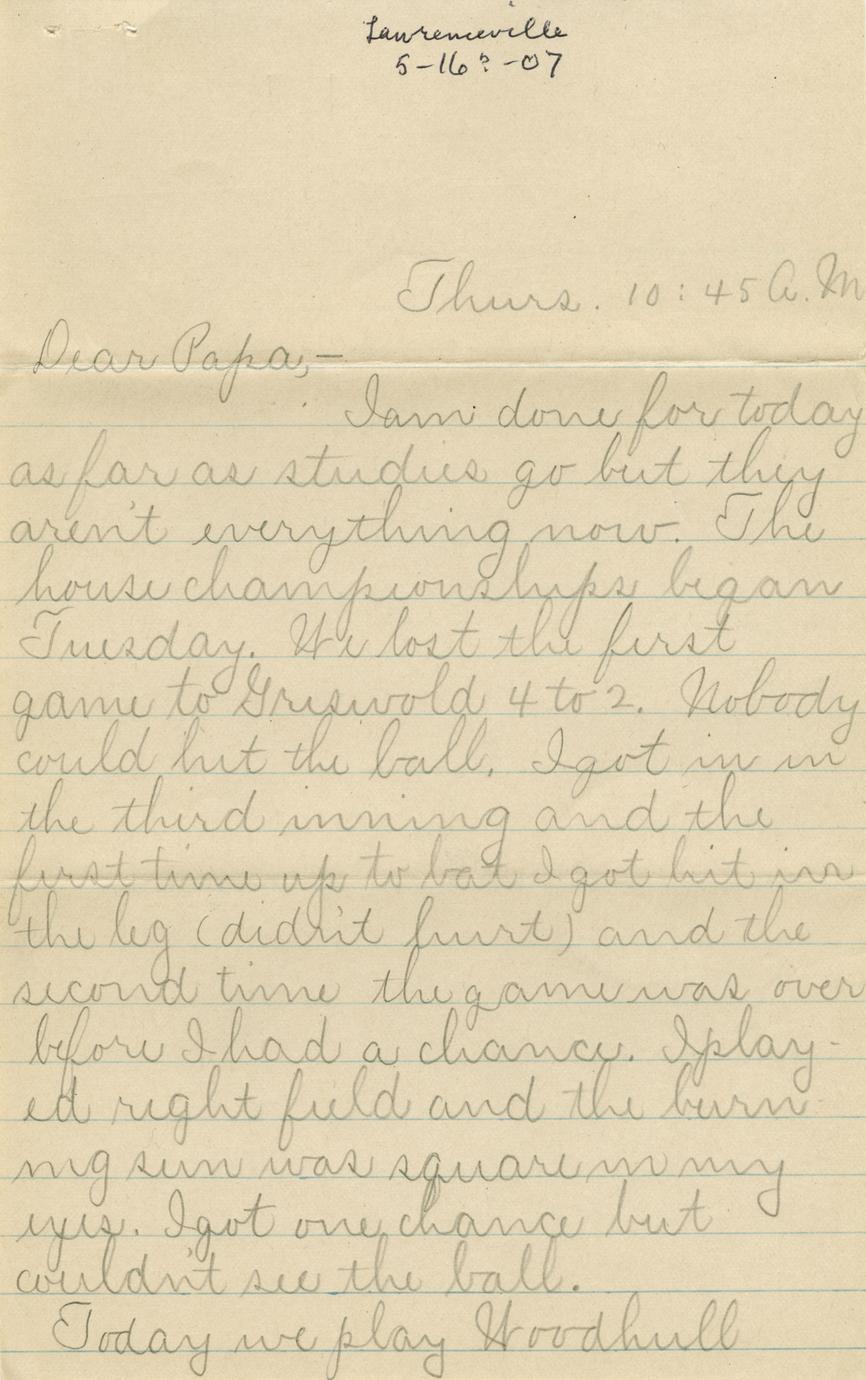 Lawrenceville
5-16?-07
Thurs. 10:45 A.M
Dear Papa,-
I am done for today
as far as studies go but they
aren't everything now. The
house championships began
Tuesday. We lost the first
game to Griswold 4 to 2. Nobody
could hit the ball. I got in in
the third inning and the
first time up to bat I got hit in
the leg (didn't hurt) and the
second time the game was over
before I had a chance. I play-
ed right field and the burn
ing sun was square in my
eyes. I got one chance but
couldn't see the ball.
Today we play Woodhull